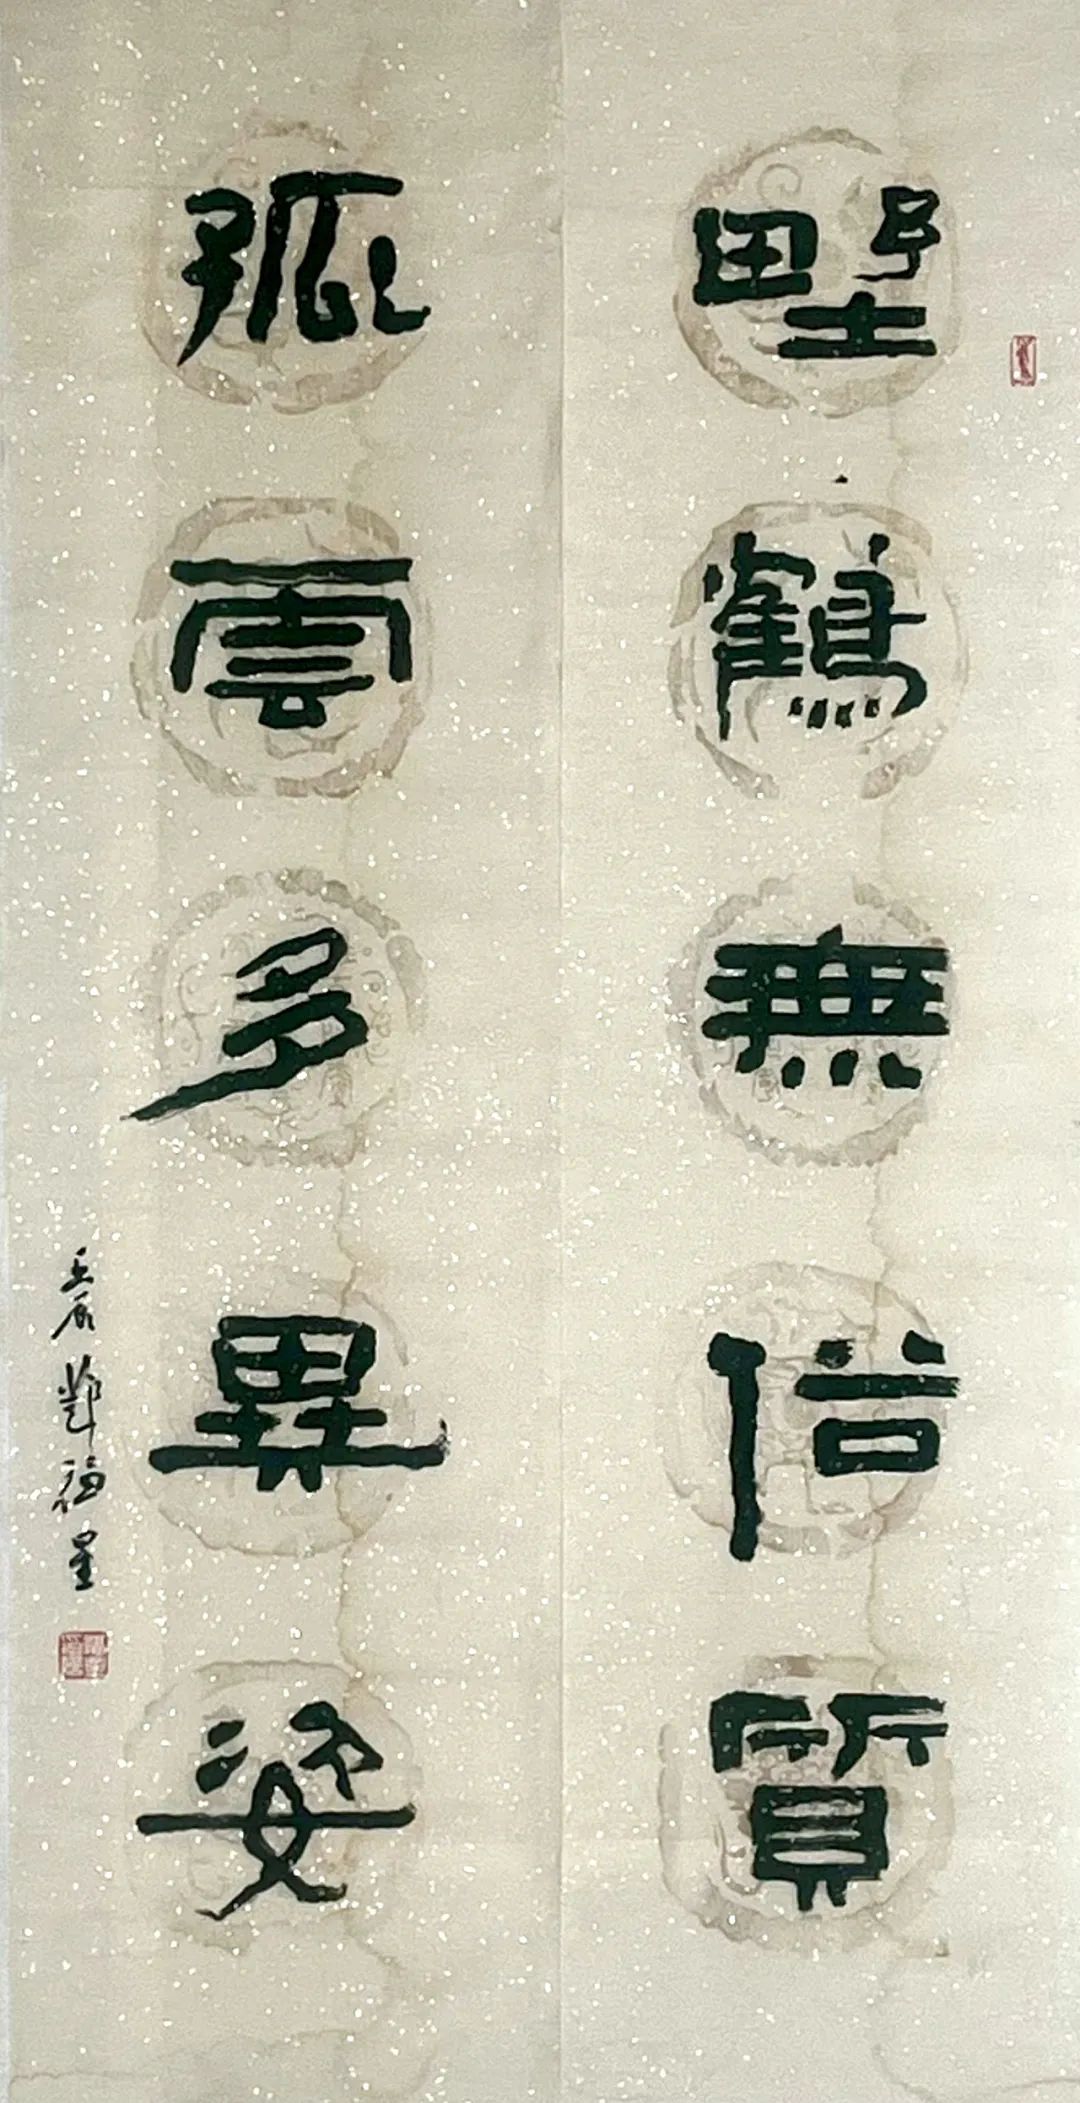 野鶴無俗質
孤雲多異姿
壬辰 福星